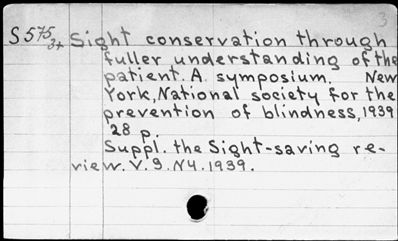 3
S575 3+ Sight conservation through
fuller understanding of the
patient. A symposium. New
York, National society for the
prevention of blindness, 1939
28 p.
Suppl. the Sight-saving re-
view. V. 9. N4. 1939.